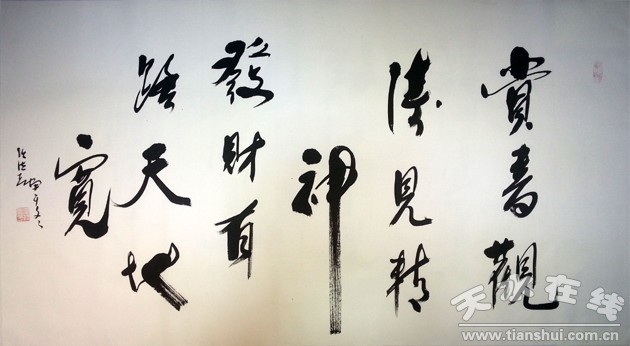 賞書觀
見精
神
發財有
路天地
寬
天水在线
www.tianshui.com.cn